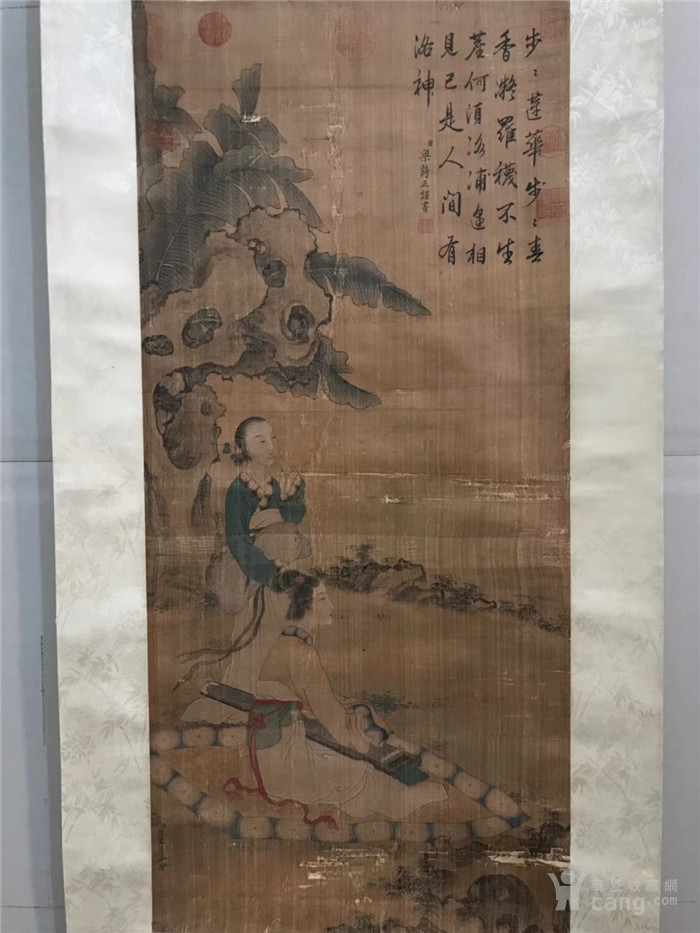 步〻蓮華步〻春
香凝羅襪不生
塵何湏洛浦逢相
見已是人間有
洛神
臣梁詩正謹書
華夏收藏網
cang.com